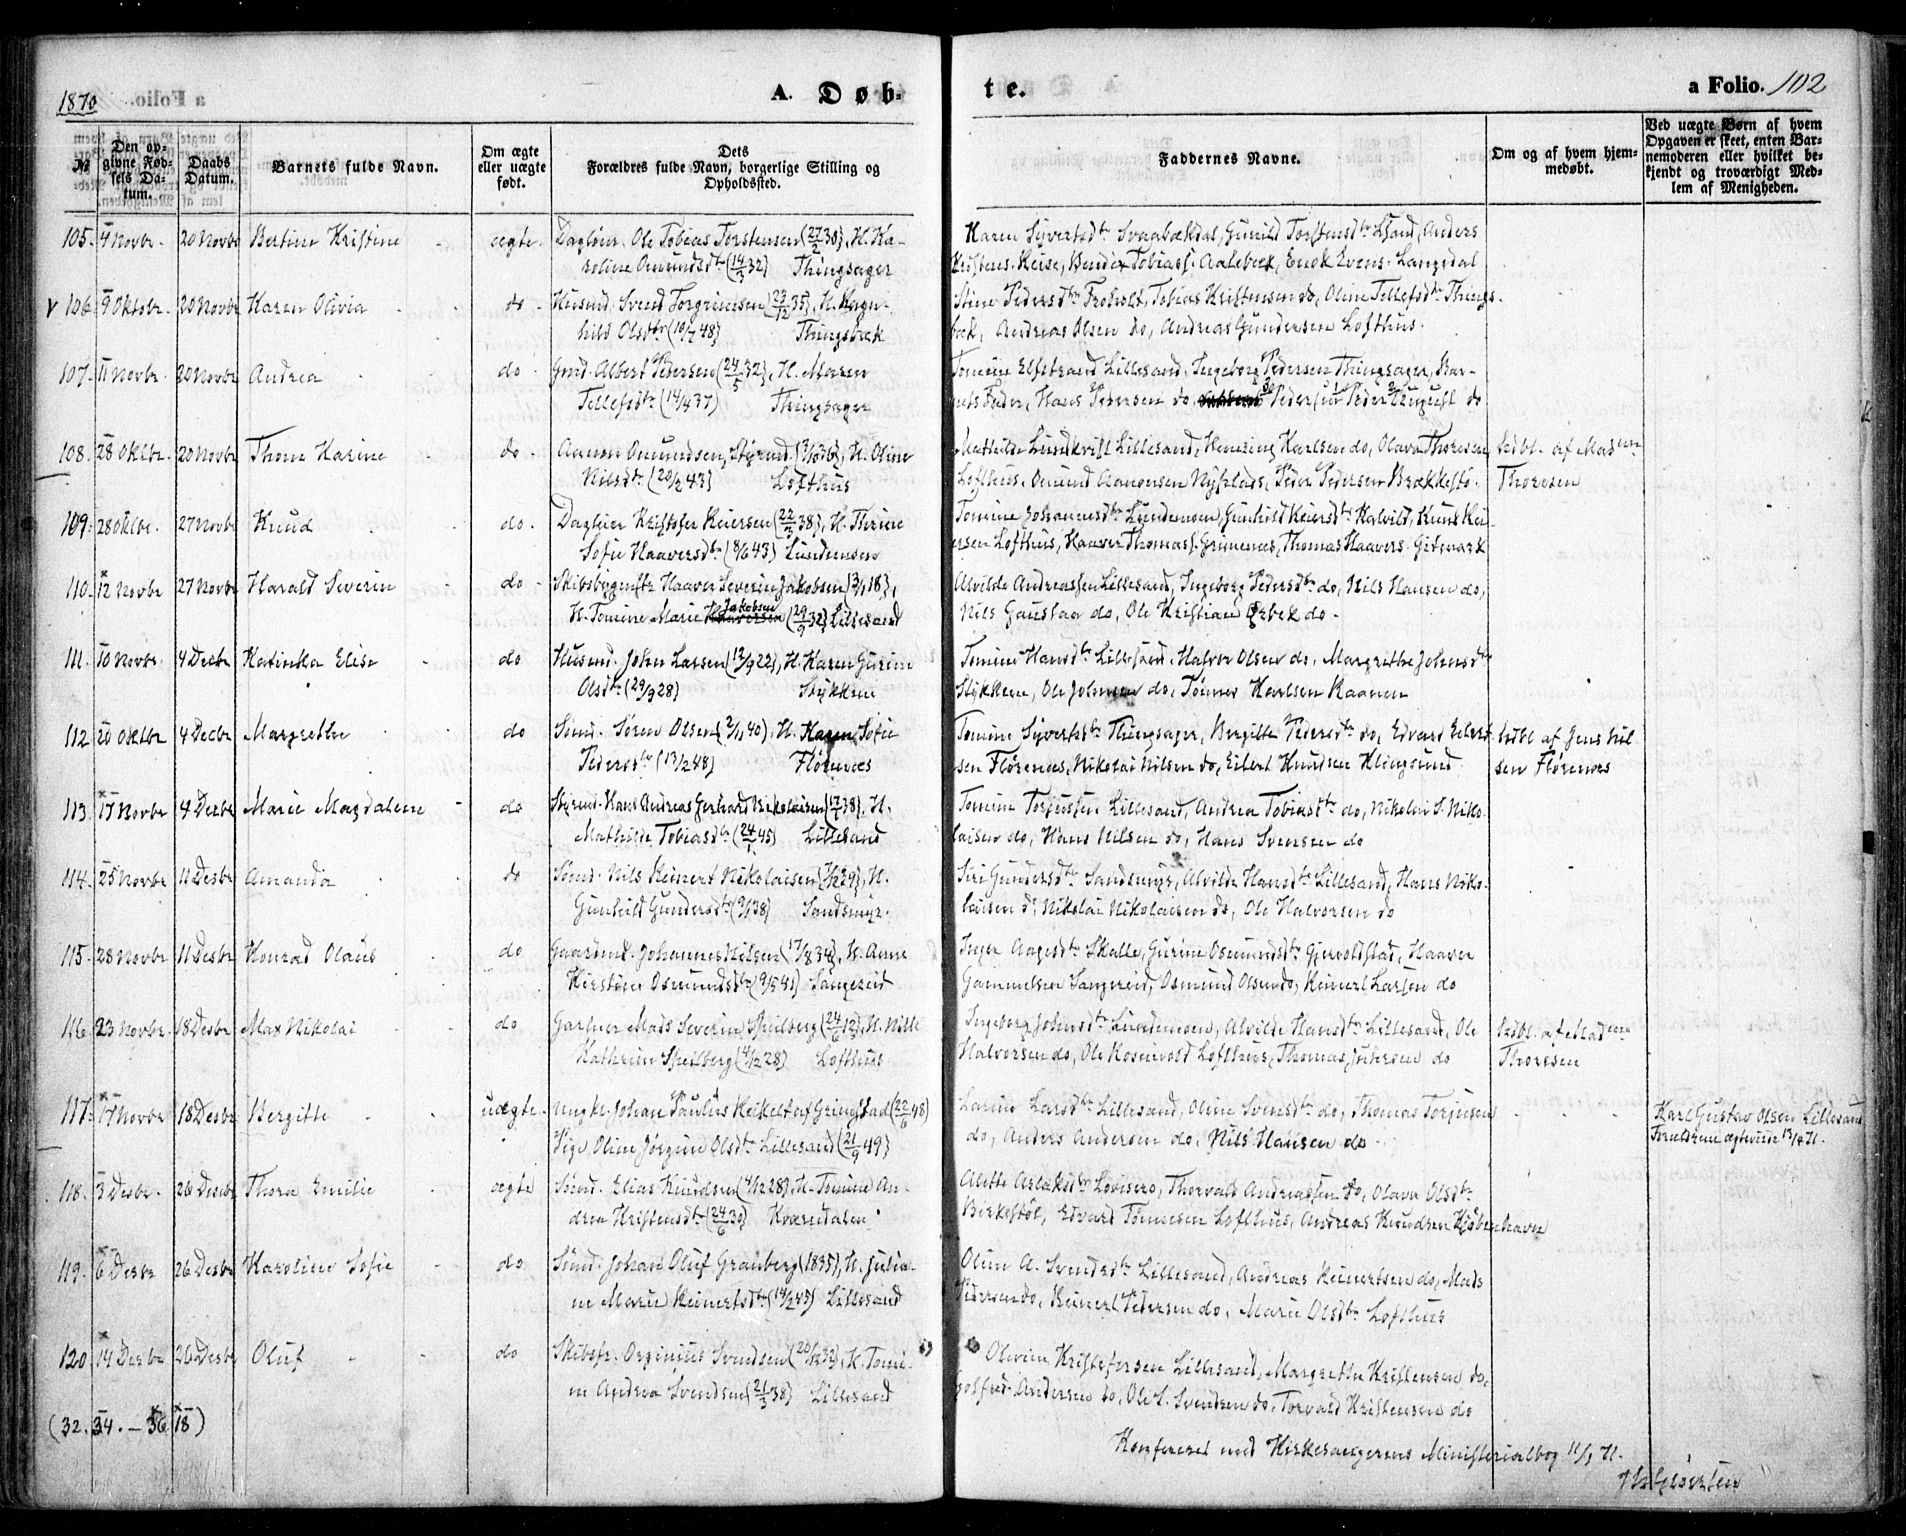 1870
A. Døb-
te.
a Folio. 102
№
Den op-
givne Fød-
sels Da-
tum.
Daabs
Datum.
Barnets fulde Navn.
Om ægte
eller uægte
født.
Dets
Forældres fulde Navn, borgerlige Stilling og
Opholdssted.
Faddernes Navne.
Om og af hvem hjem-
medøbt.
Ved uægte Børn af hvem
Opgaven er skeet, enten Bar-
nemoderen eller hvilket be-
kjendt og troværdigt Med-
lem af Menigheden.
105. 4 Novbr. 20 Novbr Bertine Kristine ægte. Dagløn. Ole Tobias Torstensen (27/2 38), H. Ka-
roline Omundsdtr (14/5 32) Thingsager
Karen Syvertsdtr Svaabækdal, Gunild Torstensdtr Lsand, Anders
Kristens. Keise, Bendix Tobiass. Aalebæk, Enok Evens. Langedal
106. 9 Oktobr. 20 Novbr Karen Olivia do Husmd. Svend Torgrimsen (22/12 35), H. Ragn-
hild Olsdtr (10/7 48) Thingsbæk
Stine Pedersdtr Frøholt, Tobias Kristensen do, Oline Tellefsdtr Things-
bæk, Andreas Olsen do, Andreas Gundersen Lofthus.
107. 11 Novbr. 20 Novbr Andrea do Grmd. Albert Pedersen (24/5 32), H. Maren
Tellefsdtr (14/4 37) Thingsager
Tomine Elfstrand Lillesand, Ingeborg Pedersen Thingsager, Bar-
nets Fader, Hans Pedersen do, Pedersen Peder August do
108. 28 Oktbr. 20 Novbr Thora Karine do. Aanon Omundsen, Styrmd. H. Oline
Nilsdtr (20/2 43) Lofthus
Mathilde Lundkvist Lillesand, Henning Karlsen do, Olava Thoresen
Lofthus, Omund Aanonsen Nyplads, Peder Pedersen Brækkestø.
Hdbl. af Madme
Thoresen
109. 28 Oktbr. 27 Novbr Knud do. Dagløn Kristofer Reiersen (22/2 38), H. Thrine
Sofie Haaversdtr (8/6 43) Lundemoen
Tomine Johannesdtr Lundemoen, Gunhild Reiersdtr Kalvild, Knud Rei-
ersen Lofthus, Haaver Thomass. Grimenes, Thomas Haavers. Gitmark
110. 12 Novbr 27 Novbr Harald Severin do Skibsbygmstr Haaver Severin Jakobsen (3/1 18),
H. Tomine Marie Jakobsen (29/9 32) Lillesand
Alvilde Andreassen Lillesand, Ingeborg Pedersdtr do, Nils Hansen do,
Nils Gaustaa do, Ole Kristian Ørbek do.
111. 10 Novbr. 4 Decbr Katinka Elise do Husmd. John Larsen (12/9 22), H. Karen Gurine
Olsdtr (29/9 28) Stykkene
Tomine Hansdtr Lillesand, Halvor Olsen do, Margrethe Johnsdtr
Stykkene, Ole Johnsen do, Tønnes Karlsen Raanen
112 20 Oktbr 4 Decbr Margrethe do Sømd. Søren Olsen (2/11 40), H. Karen Sofie
Pedersdtr (13/2 48) Florenæs
Tomine Syvertsdtr Thingsager, Bergitte Pedersdtr do, Edvard Eilert-
sen Florenæs, Nikolai Nilsen do, Eilert Knudsen Klingsund
Hdbl af Jens Nil-
sen Florenæs
113 17 Novbr 4 Desbr Marie Magdalene do Styrmd. Hans Andreas Gerhard Nikolaisen (17/7 38), H.
Mathilde Tobiasdtr (24/1 45) Lillesand
Tomine Torjussen Lillesand, Andrea Tobiasdtr do, Nikolai S. Niko-
laisen do, Hans Nilsen do, Hans Svensen do
114. 25 Novbr 11 Desbr Amanda do Sømd. Nils Reinert Nikolaisen H.
Gunhild Gundersdtr (9/1 38) Sandsmyr.
Siri Gundersdtr Sandsmyr, Alvilde Hansdtr Lillesand, Hans Niko-
laisen do, Nikolai Nikolaisen do, Ole Halvorsen do
115. 28 Novbr 11 Desbr Konrad Olaus do Gaardmd. Johannes Nilsen (17/8 34), H. Anne
Kirstine Osmundsdtr (9/5 41) Sangereid
Inger Aagesdtr Skalle, Gurine Osmundsdtr Gjervoldstad, Haaver
Gammelsen Sangereid, Osmund Olsen do, Reinert Larsen do
116. 23 Novbr. 18 Desbr Max Nikolai do Gartner Mads Severin Spielberg (24/6 12), H. Nille
Kathrine Spielberg (4/12 28) Lofthus
Ingeborg Johnsdtr Lundemoen, Alvilde Hansdtr Lillesand, Ole
Halvorsen do, Ole Rosenvold Lofthus, Thomas Juhesen do
Hdbl. af Madme
Thoresen
117. 17 Novbr 18 Desbr Bergitte uægte. Ungk. Johan Paulus Keikelt af Gringstad (22/6 48)
Pige Oline Jørgine Olsdtr Lillesand (21/9 49)
Larine Larsdtr Lillesand, Oline Svensdtr do, Thomas Torjusen
do, Anders Andersen do, Nils Hansen do.
Karl Gustav Olsen Lillesand
Forældrene ægteviede 13/4 71.
118. 3 Desbr. 26 Desbr Thora Emilie ægte Sømd. Elias Knudsen (4/12 28), H. Tomine An-
drea Kristensdtr (24/6 30) Kværndalen
Alette Aslaksdtr Løvisero, Thorvald Andreassen do, Olava Olsdtr
Birkestøl, Edvard Tønnesen Lofthus, Andreas Knudsen Kjøbenhavn
119. 6 Desbr 26 Desbr Karoline Sofie do Sømd. Johan Oluf Granberg (1835), H. Julia-
ne Marie Reinertsdtr (14/2 45) Lillesand
Oline A. Svendsdtr Lillesand, Andreas Reinertsen do, Mads
Pedersen do, Reinert Pedersen do, Marie Olsdtr Lofthus
120 14 Desbr 26 Desbr Oluf do Skibsfr. Orginius Svendsen (20/12 32), H. Tomi-
ne Andrea Svendsen (21/3 38) Lillesand
Olevine Kristofersen Lillesand, Margrethe Kristensen do,
Gotfred Andersen do, Ole S. Svendsen do, Torvald Kristensen do
(32. 34. – 36. 18)
Konfereret med Kirkesangerens Ministerialbog 11/1 71.